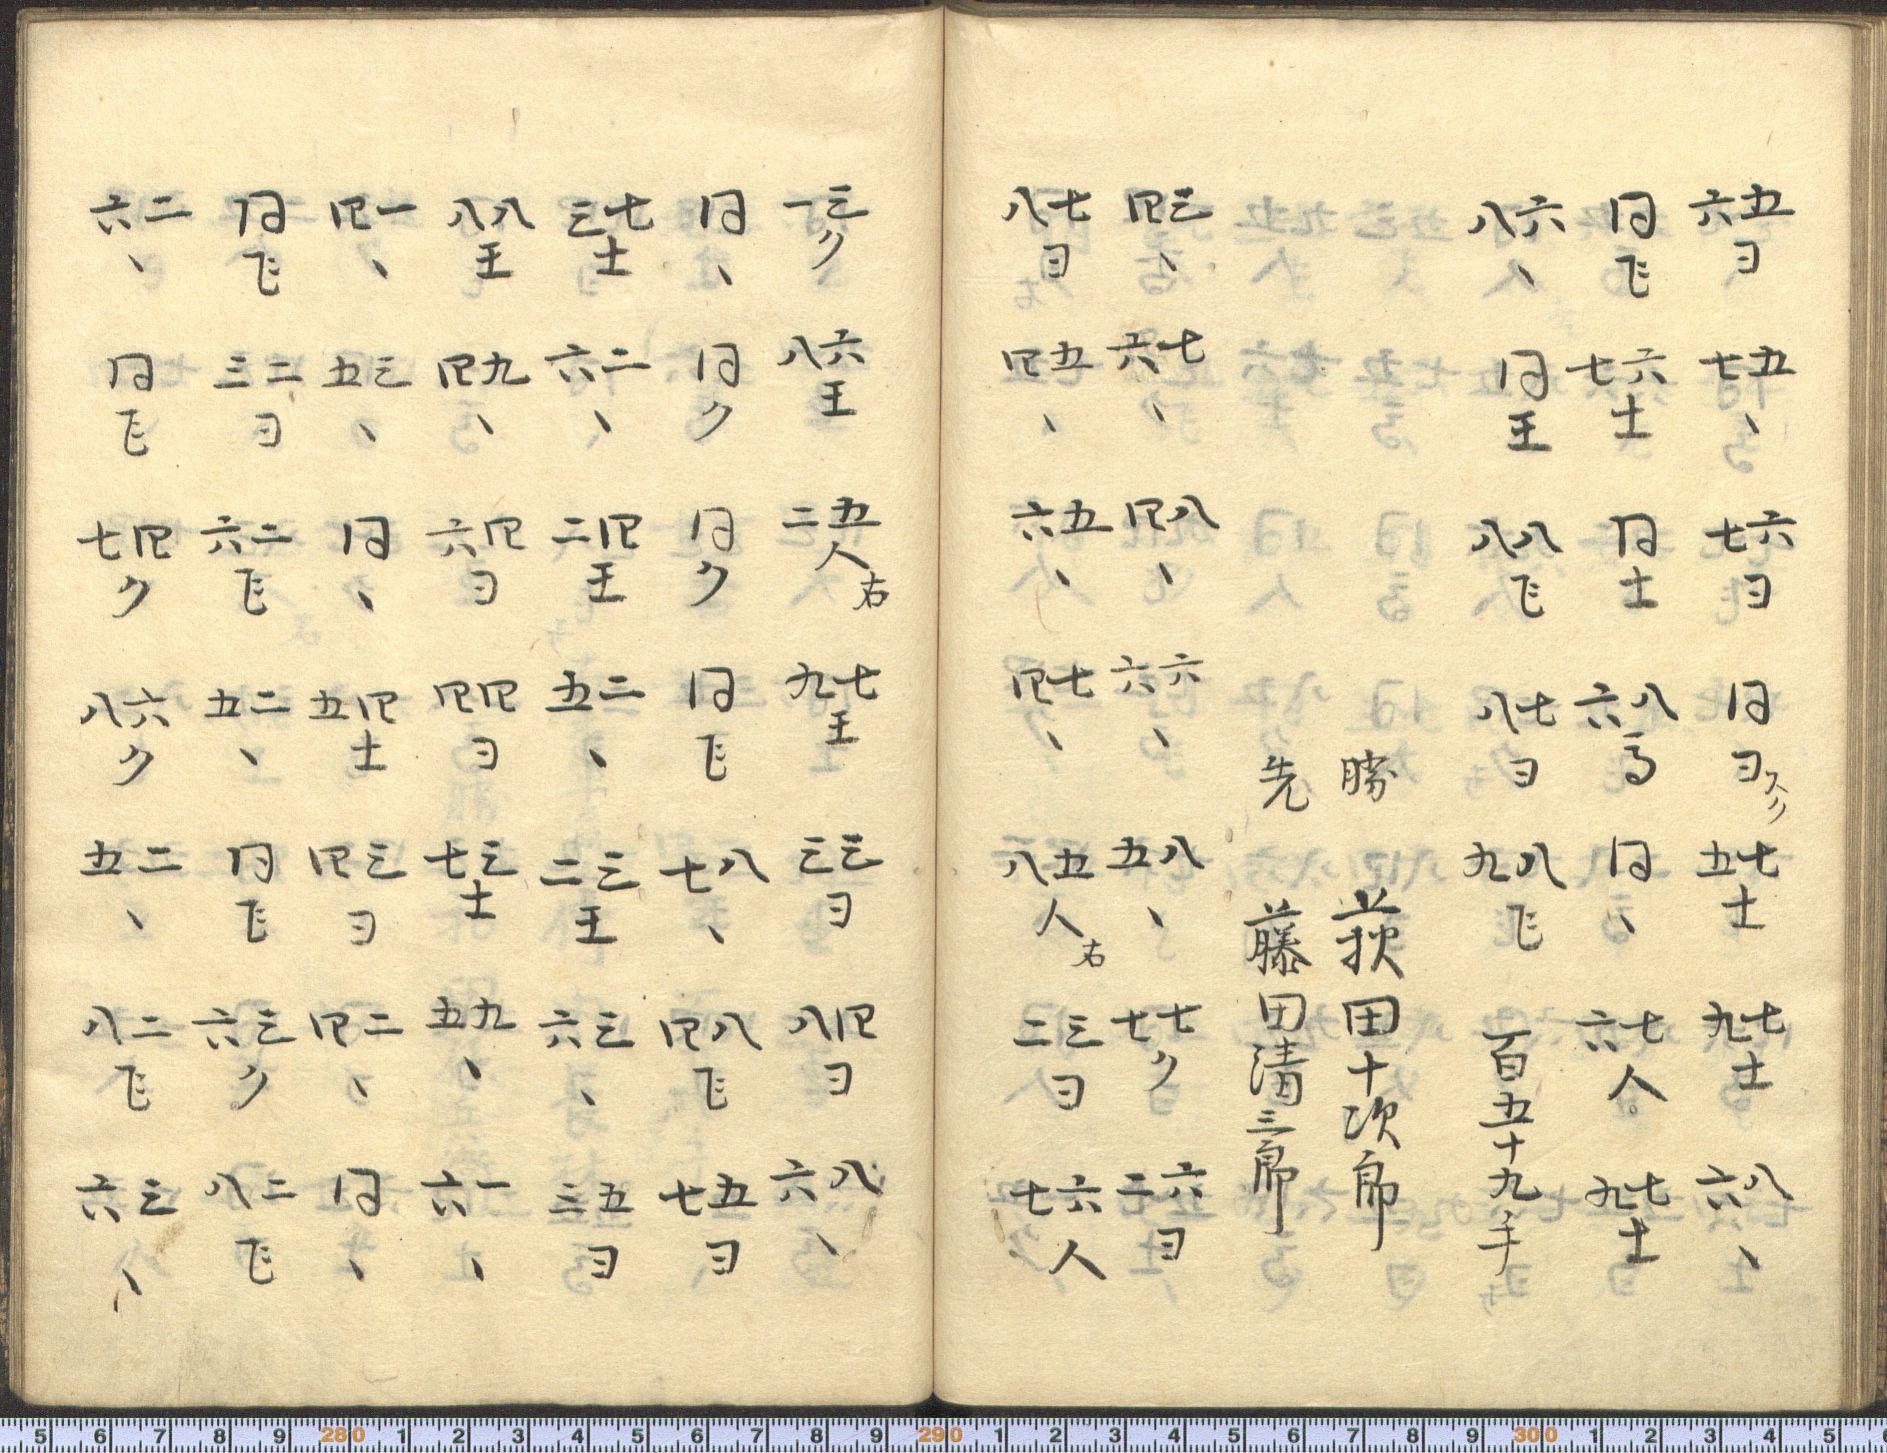 五六ヨ 五七、 六七ヨ 同ヨスク 七五士 七九士 八六、
同飞 六七士 同士 八六る 同、 七六人 七九士
六八、 同王 八八飞 七八ヨ 八九飞 一百五十九手
勝 荻田十次郎
先 藤田清三郎
三四、 七六、 八四、 六六、 八五、 七七ク 六二ヨ
七八目 五四、 五六、 七四、 五八人右 三二ヨ 六七人
三一ク 六八王 五二人右 七九王 三三ヨ 四八ヨ 八六、
同、 同ク 同ク 同飞 八七、 八四飞 五七ヨ
七三士 二六、 四二王 二五、 三二王 三六、 五三ヨ
八八王 九四、 四六ヨ 四四ヨ 三七士 九五、 一六、
一四、 三五、 同、 四五士 三四ヨ 二四、 同、
同飞 二三ヨ 二六飞 二五、 同飞 三六ク 二八飞
二六、 同飞 四七ク 六八ク 二五、 二八飞 三六、
5 6 7 8 9 280 1 2 3 4 5 6 7 8 9 290 1 2 3 4 5 6 7 8 9 300 1 2 3 4 5